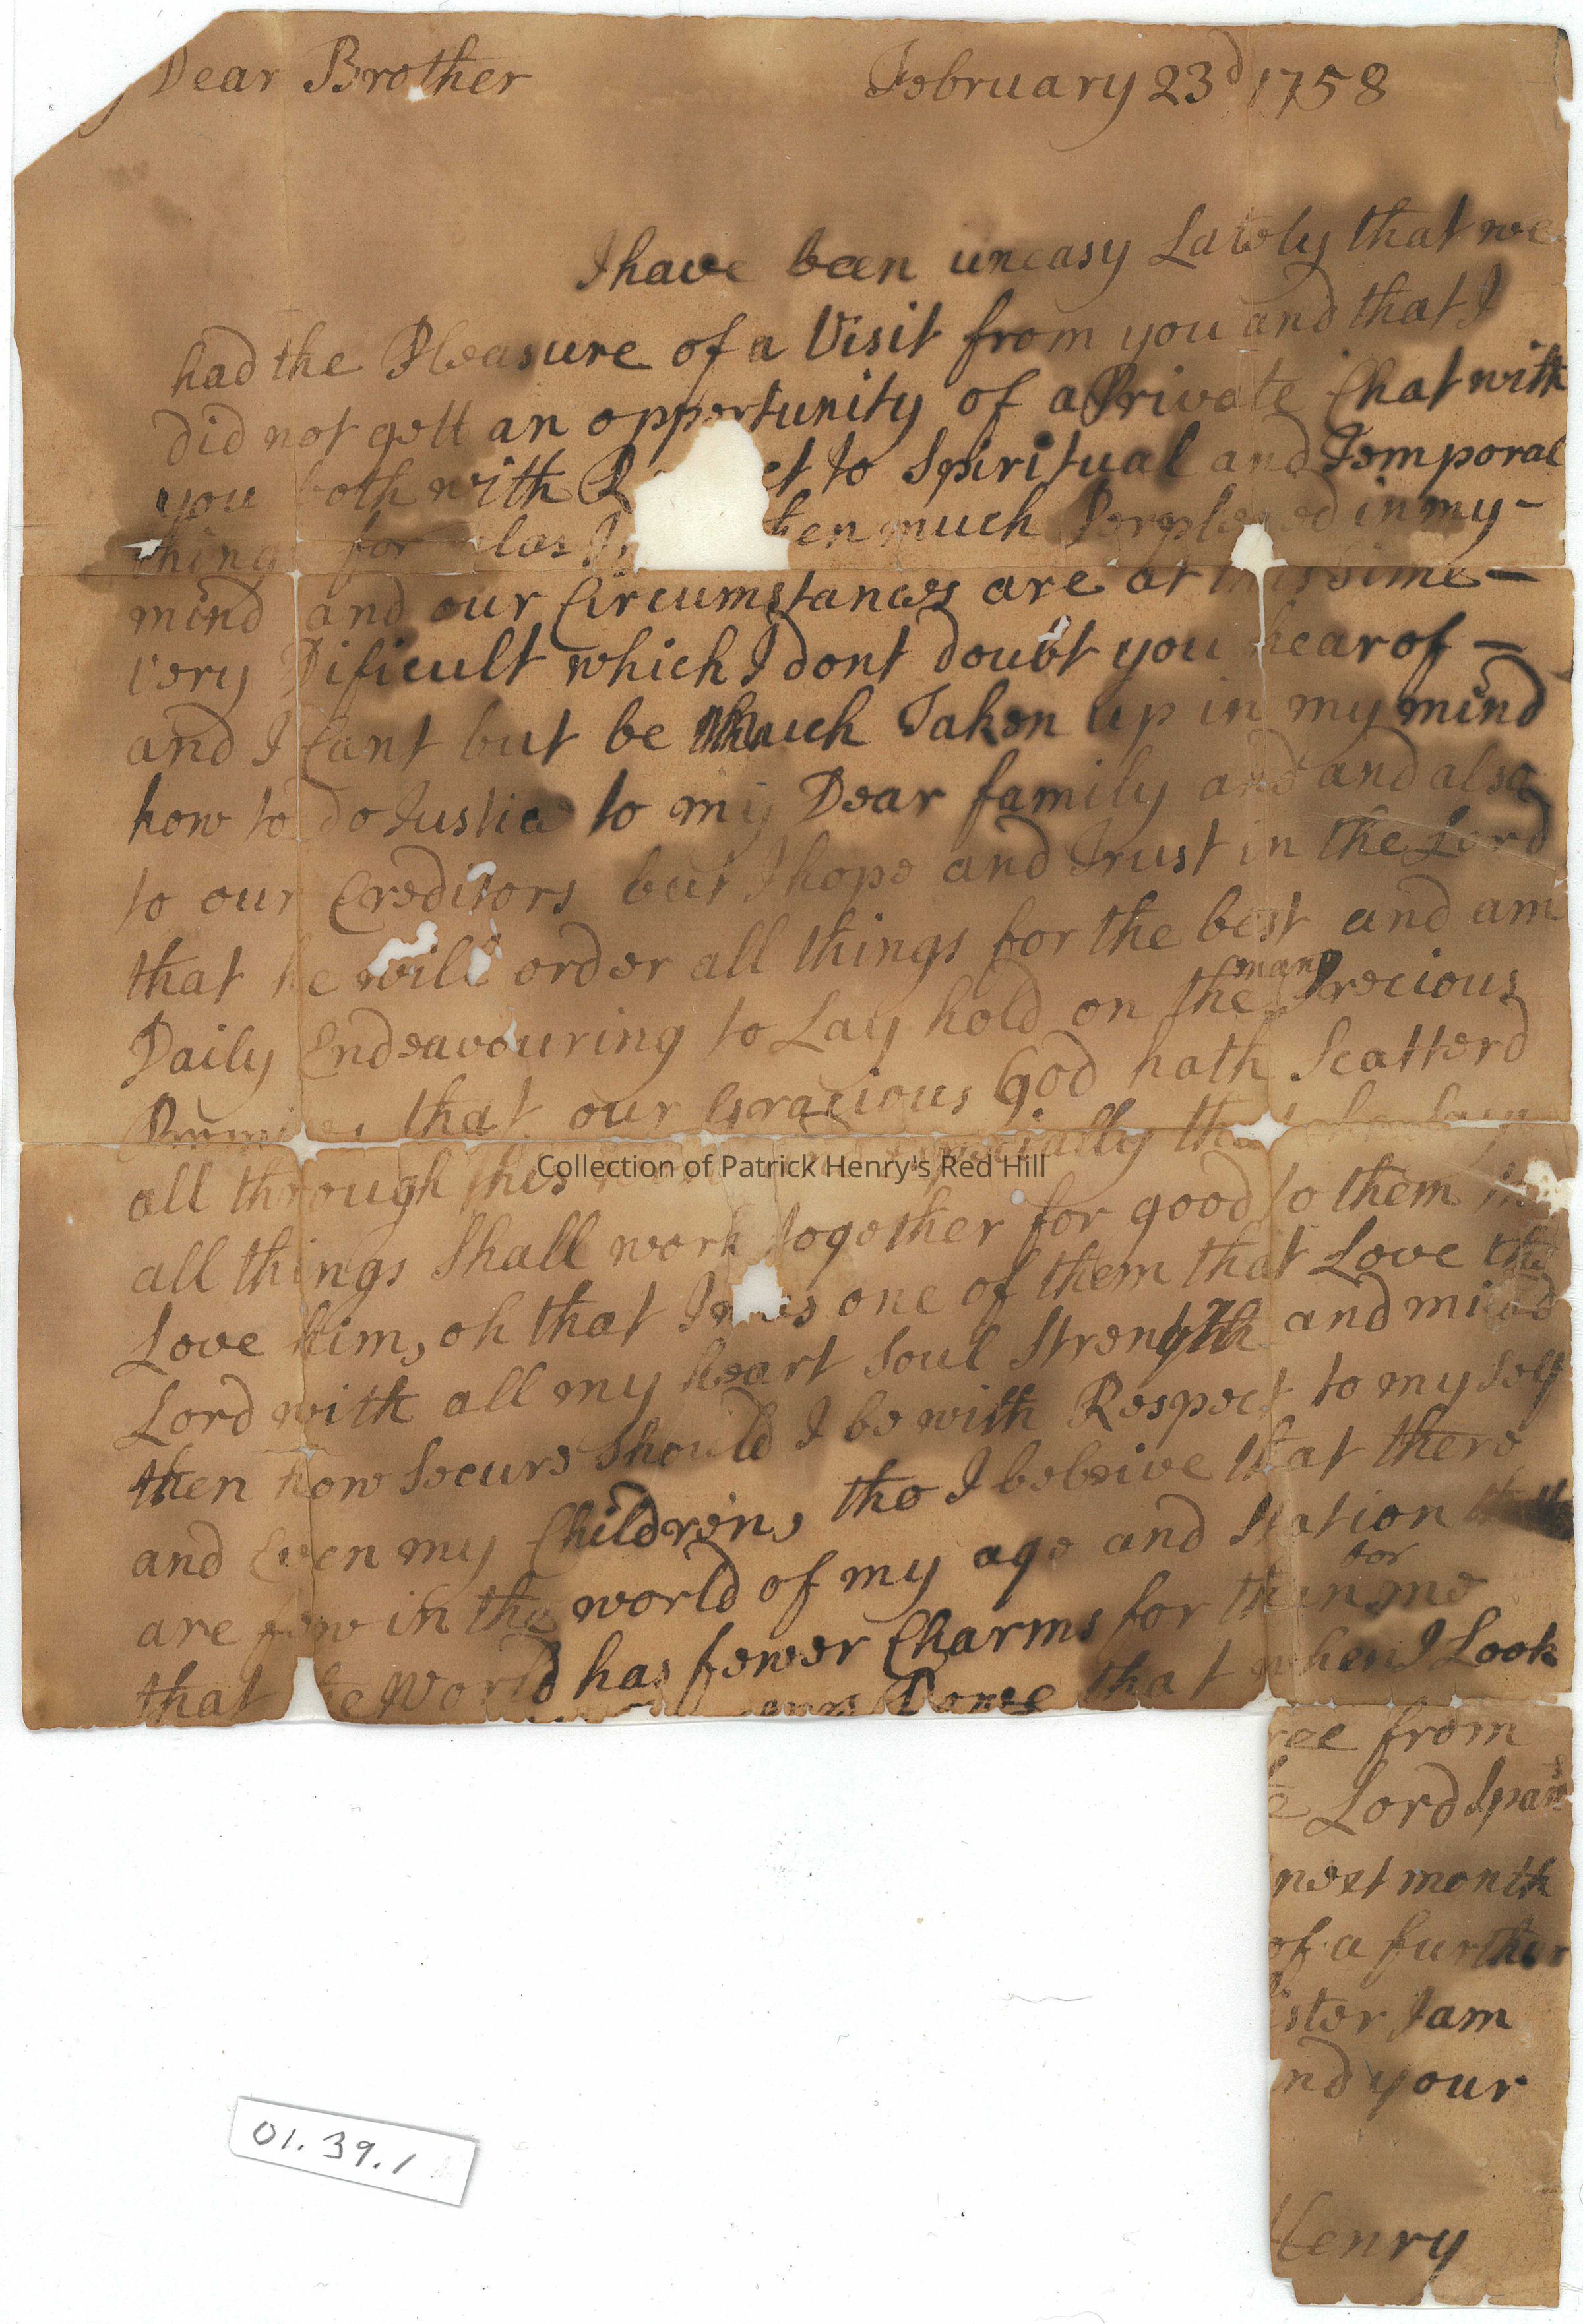 Dear Brother February 23d 1758
I have been uneasy Lately that we
had the Pleasure of a Visit from you and that I
did not gett an opportunity of a Private Chat with
you both with R ct to Spiritual and Temporal
things for alas I ten much Perplexed in my -
mind and our Circumstances are at this time -
very Dificult which I dont doubt you hear of -
and I Cant but be much Taken up in my mind
how to do Justice to my Dear family and and also
to our Creditors but I hope and Trust in the Lord
that he will order all things for the best and am
Daily Endeavouring to Lay hold on the many Precious
Promises that our Gracious God hath Scatterd
all through his especially that
Collection of Patrick Henry's Red Hill
all things Shall work together for good to them
Love him, oh that I was one of them that Love the
Lord with all my heart Soul Strength and mind
then how Secure Should I be with Respect to my Self
and Even my Children, tho I beleive that there
are few in the world of my age and Station that
that the World has fewer Charms for then for me
Dove that when I Look
ree from
e Lord Spare
next month
of a further
ister I am
nd your
Henry
01.39.1